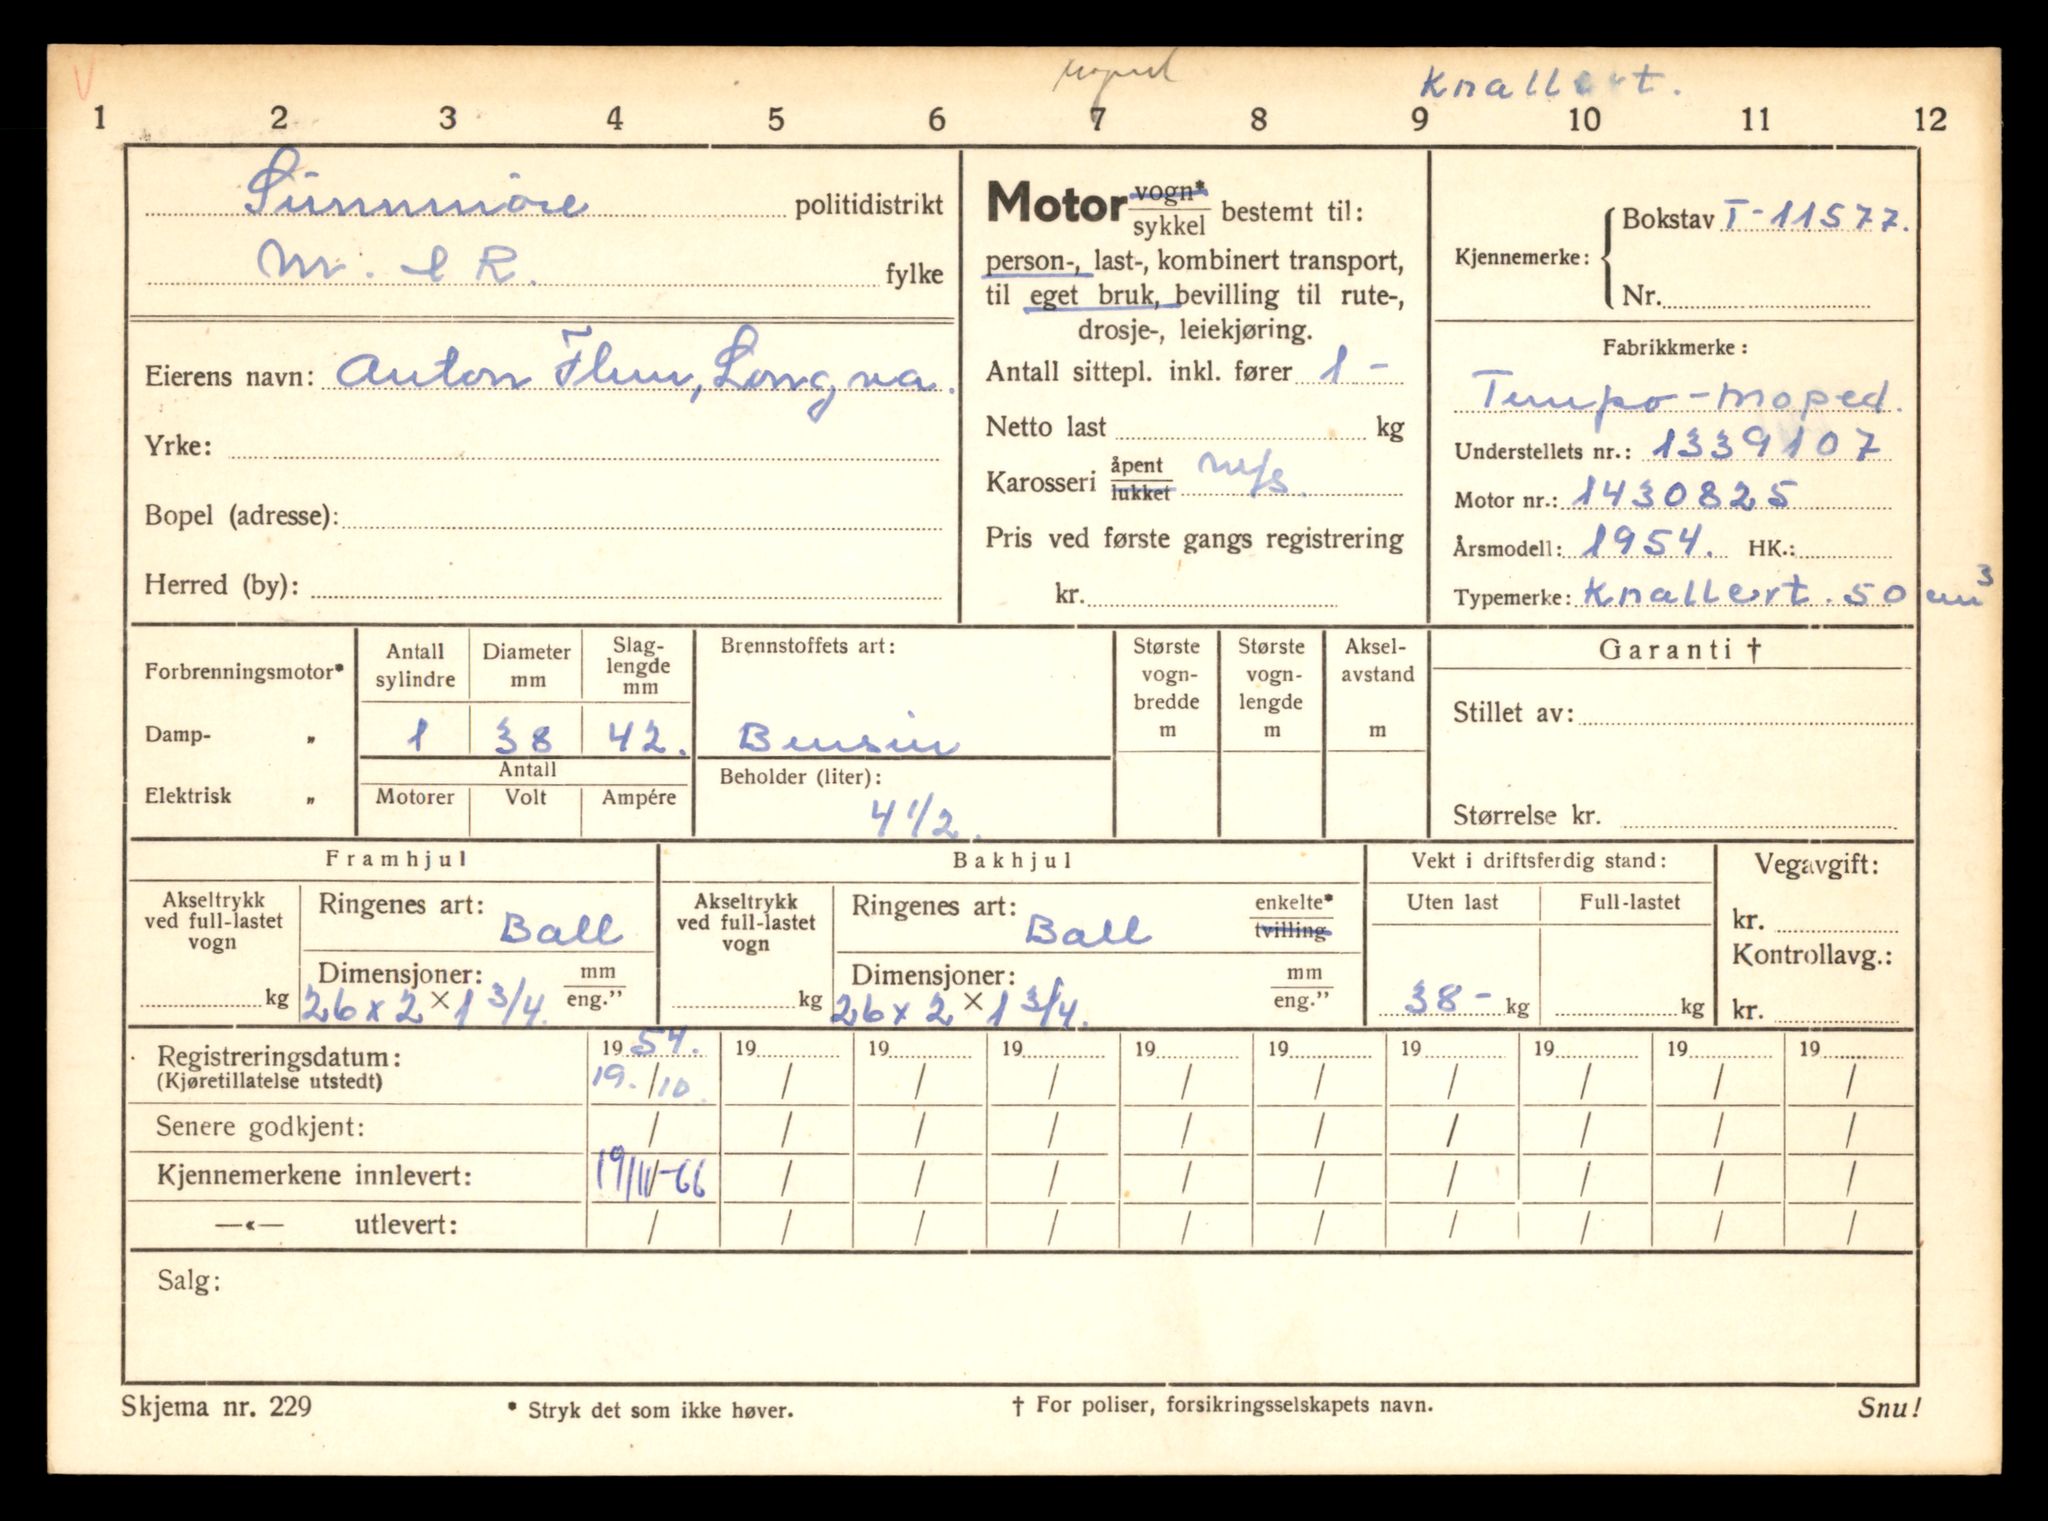 Knallert.
1 2 3 4 5 6 7 8 9 10 11 12
Sünnmöre politidistrikt
M. & R. fylke
Eierens navn: Anton Flem, Longva.
Yrke:
Bopel (adresse):
Herred (by):
Motor vogn* / sykkel bestemt til:
person-, last-, kombinert transport,
til eget bruk, bevilling til rute-,
drosje-, leiekjøring.
Antall sittepl. inkl. fører 1 -
Netto last kg
Karosseri åpent / lukket
Pris ved første gangs registrering
kr.
Kjennemerke: Bokstav T-11577.
Nr.
Fabrikkmerke:
Tempo-Moped.
Understellets nr.: 1339107
Motor nr.: 1430825
Årsmodell: 1954. HK.:
Typemerke: Knallert. 50 cm³
Forbrenningsmotor*
Damp- „
Elektrisk „
Antall sylindre Diameter mm Slag-lengde mm
1 38 42.
Antall
Motorer Volt Ampére
Brennstoffets art:
Bensin
Beholder (liter):
4 1/2.
Største vogn-bredde m
Største vogn-lengde m
Aksel-avstand m
Garanti †
Stillet av:
Størrelse kr.
Framhjul
Akseltrykk ved full-lastet vogn
kg
Ringenes art: Ball
Dimensjoner: mm / eng."
26 x 2 x 1 3/4.
Bakhjul
Akseltrykk ved full-lastet vogn
kg
Ringenes art: Ball enkelte* / tvilling
Dimensjoner: mm / eng."
26 x 2 x 1 3/4.
Vekt i driftsferdig stand:
Uten last Full-lastet
38 - kg kg
Vegavgift:
kr.
Kontrollavg.:
kr.
Registreringsdatum: 19 54. 19 19 19 19 19 19 19 19 19
(Kjøretillatelse utstedt) 19. / 10. / / / / / / / / /
Senere godkjent: / / / / / / / / / /
Kjennemerkene innlevert: 19/11-66 / / / / / / / / /
—«— utlevert: / / / / / / / / / /
Salg:
Skjema nr. 229 * Stryk det som ikke høver. † For poliser, forsikringsselskapets navn. Snu!